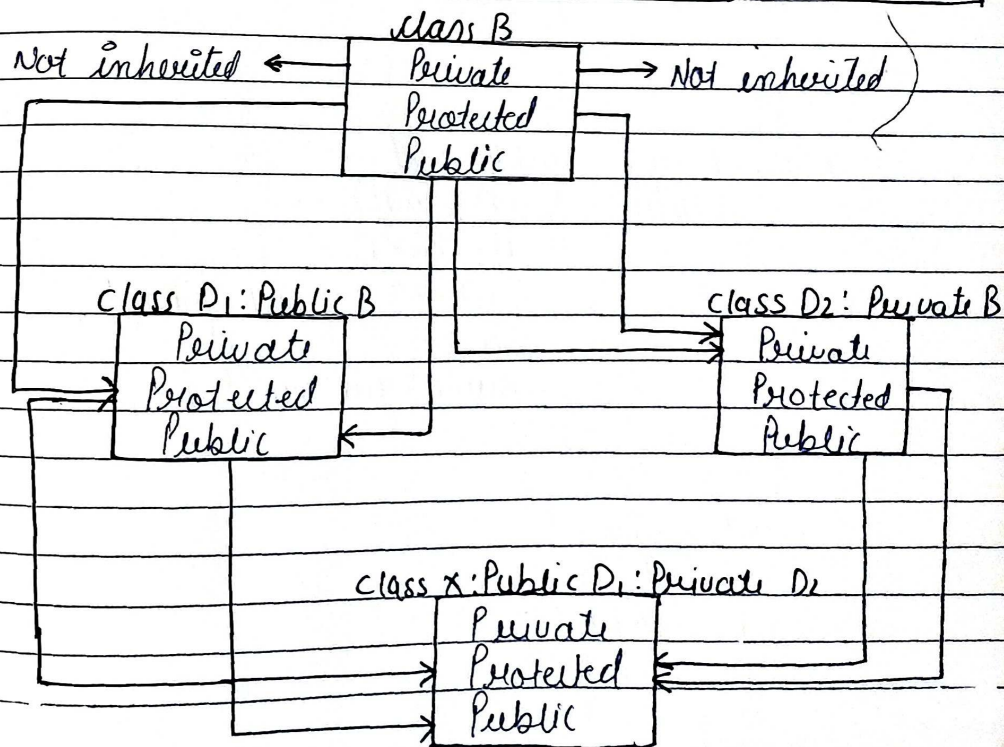 class B
Not inherited
Private
Not inherited
Protected
Public
class D1: Public B
class D2: Private B
Private
Protected
Public
Private
Protected
Public
class X: Public D1: Private D2
Private
Protected
Public